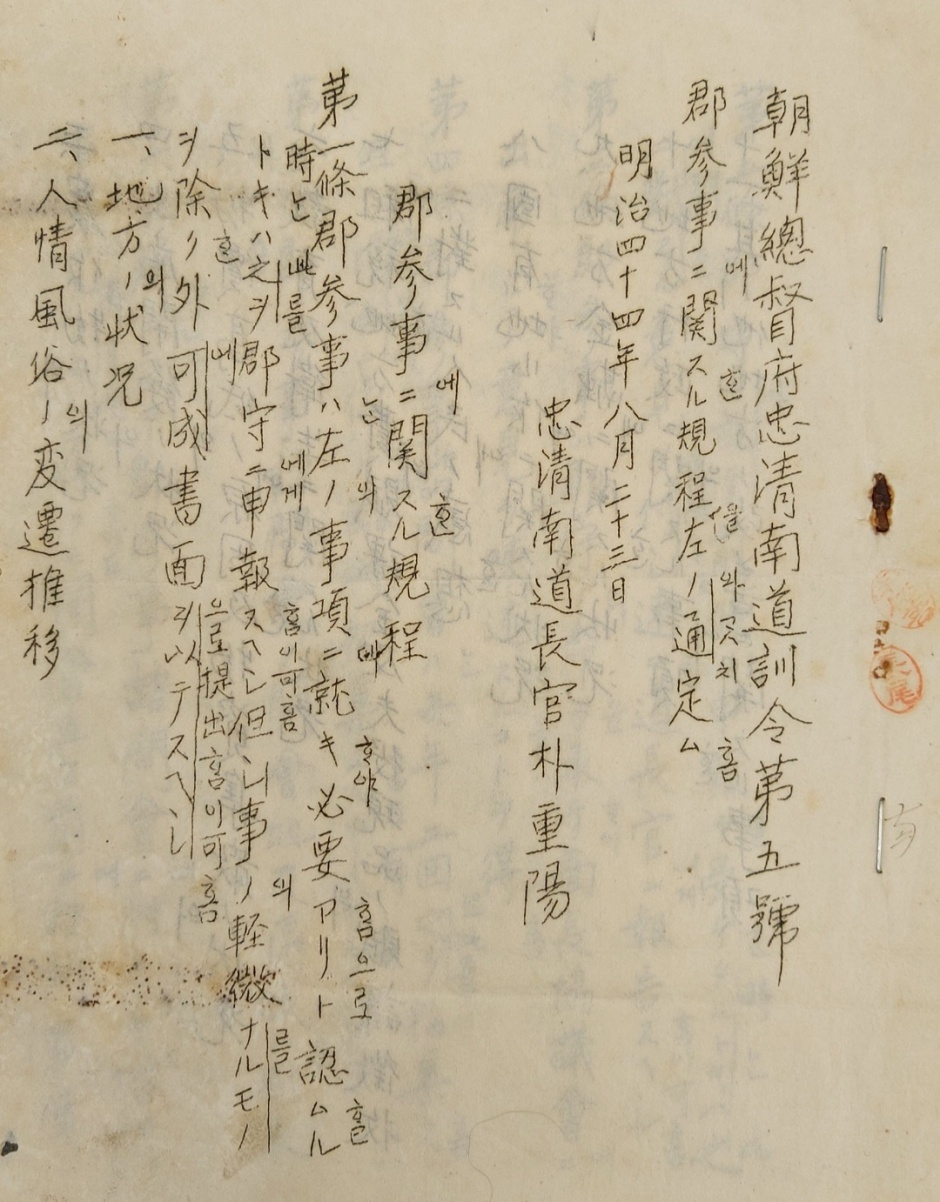 朝鮮總督府忠清南道訓令第五號
郡参事ニ関スル規程左ノ通定ム
에 혼 을 와 ᄀᆞᆺ치 홈
明治四十四年八月二十三日
忠清南道長官朴重陽
郡参事ニ関スル規程
에 혼
第一條郡参事ハ左ノ事項ニ就キ必要アリト認ムル
는 의 에 ᄒᆞ야 홈으로 홀
トキハ之ヲ郡守ニ申報スヘシ但シ事ノ軽微ナルモノ
時는 此를 에게 홈이可홈 의 를
ヲ除ク外可成書面ヲ以テスヘシ
혼 에 으로提出홈이可홈
一、地方ノ状况
의
二、人情風俗ノ変遷推移
의